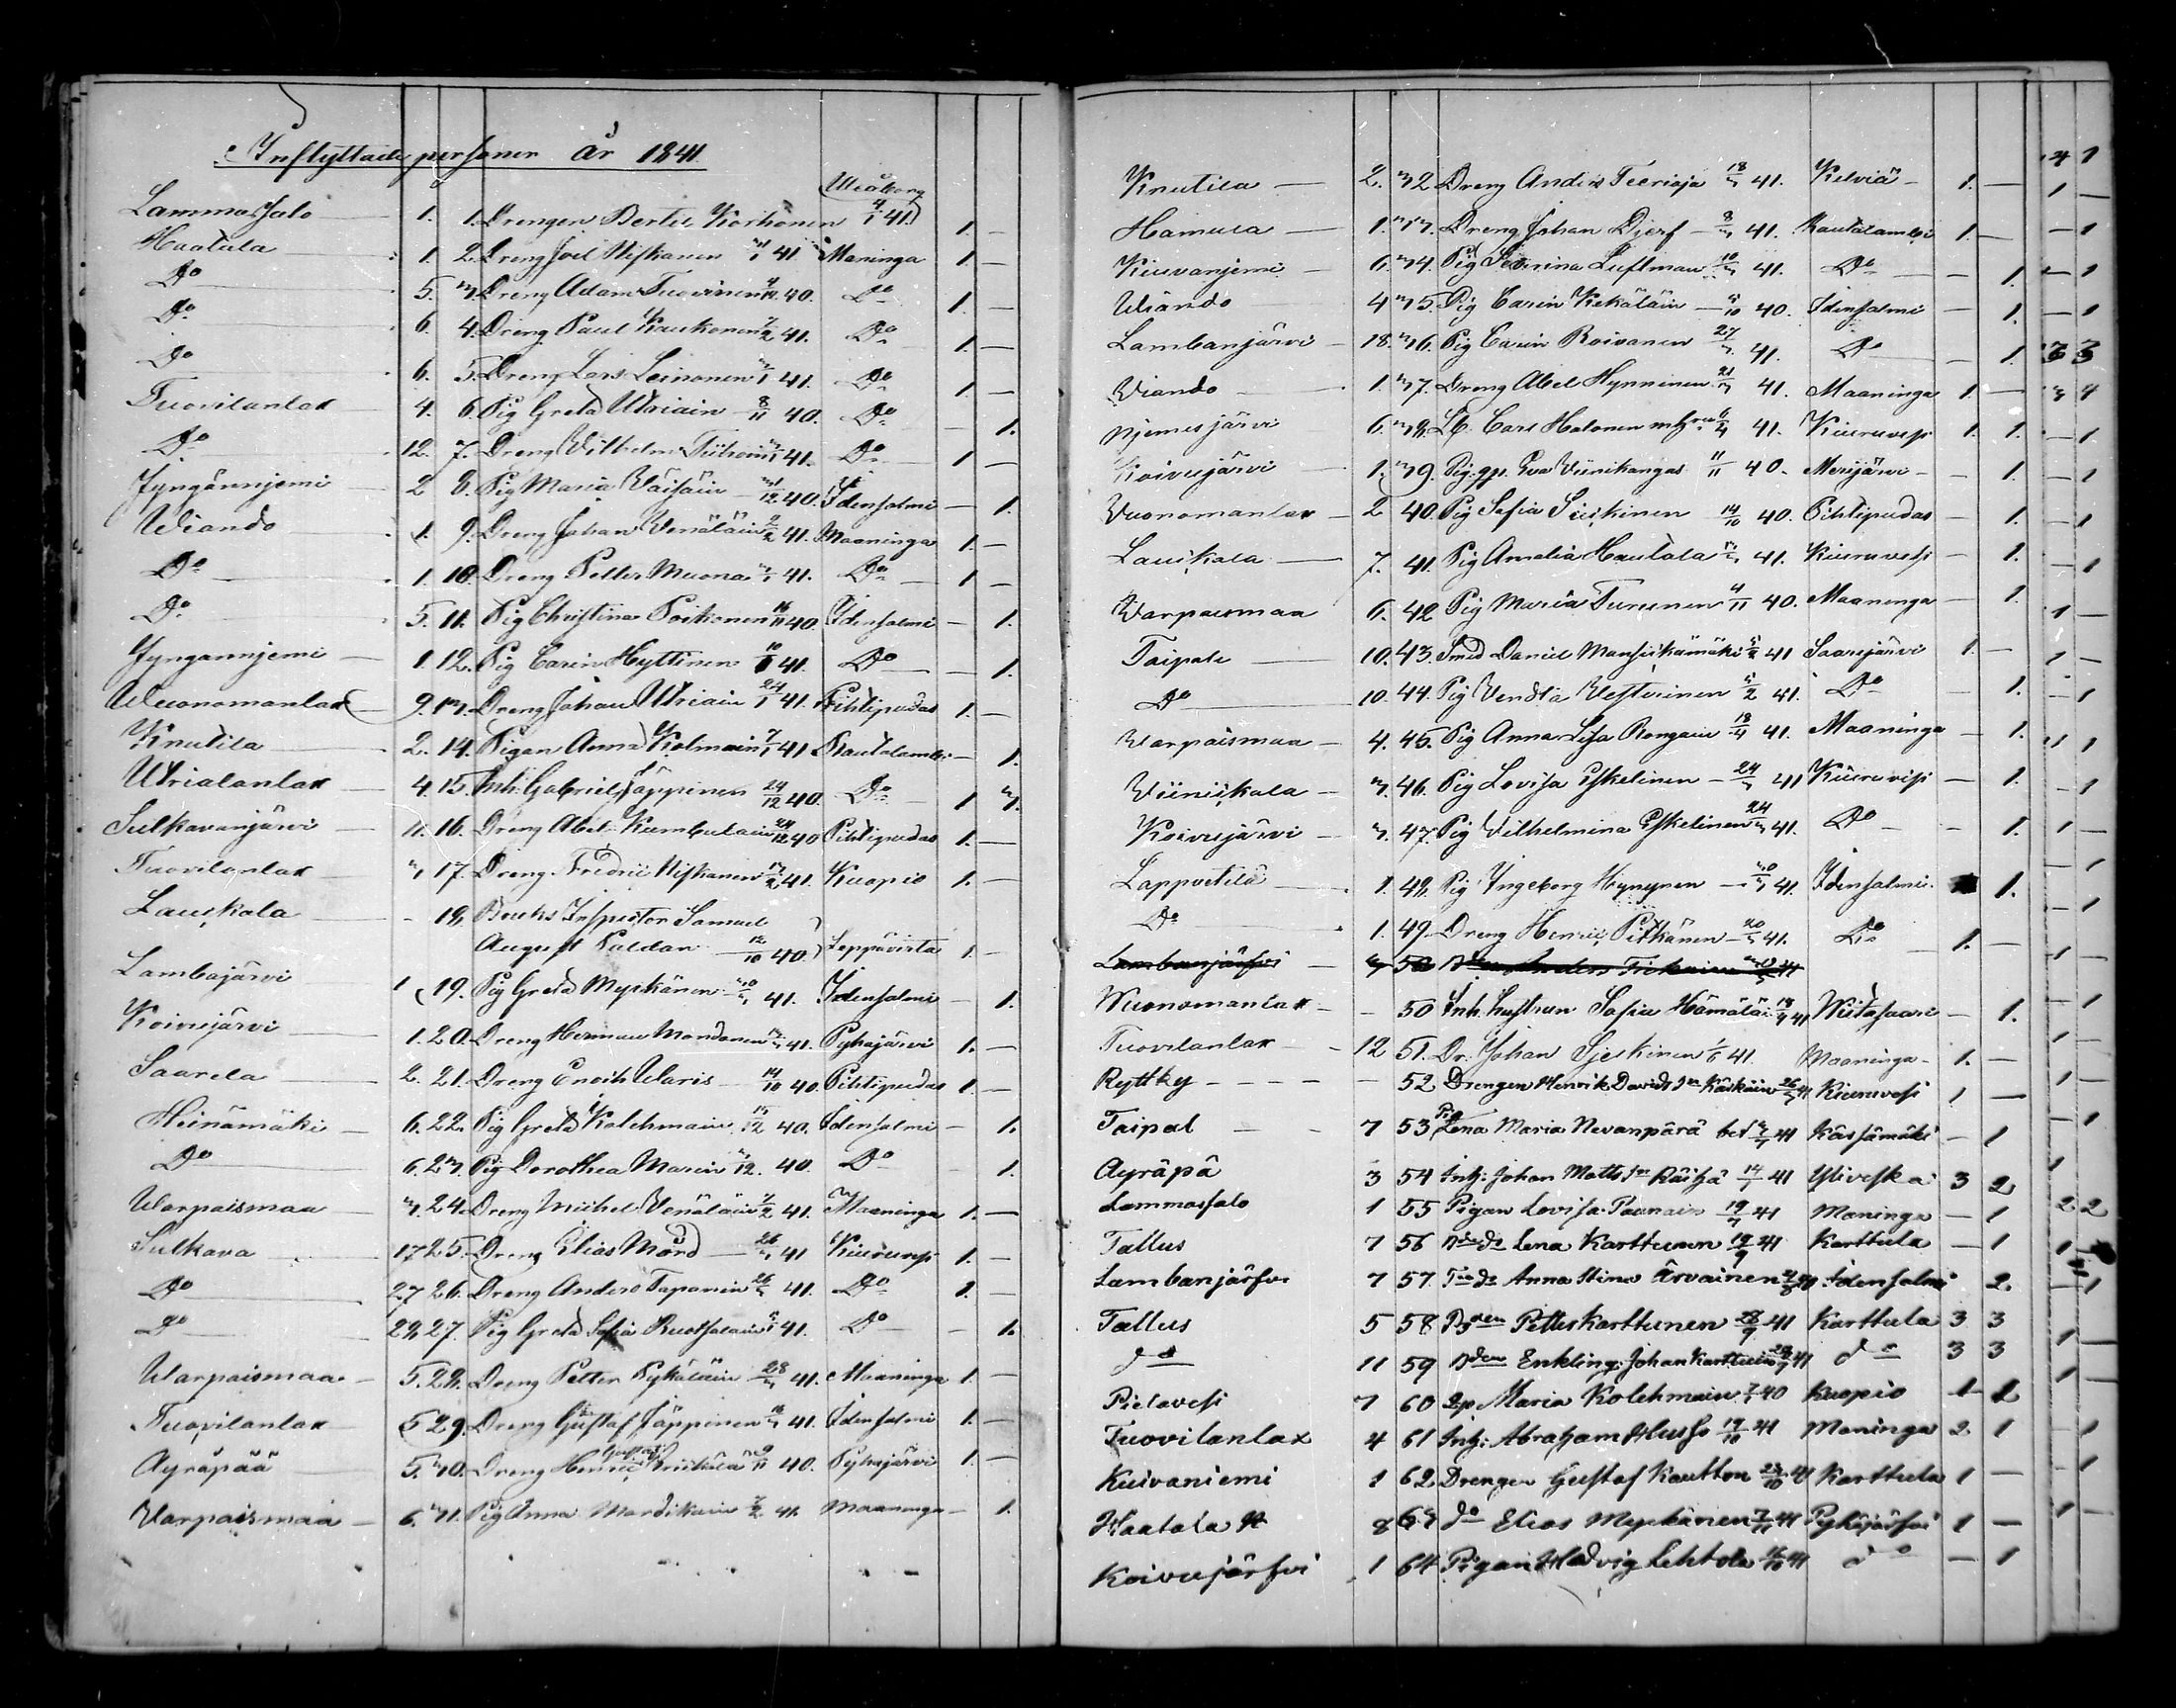 Inflyttade personer år 1841.
Lammassalo 1. 1. Drengen Bertil Korhonen Uleåborg 4/1 41. 1. —
Haatala 1. 2. Dreng Joel Niskanen 41 Maninga 1. —
Do 5. 3. Dreng Adam Tuovinen 40. Do 1. —
Do 6. 4. Dreng Paul Kaukonen 7/2 41. Do 1. —
Do 6. 5. Dreng Lars Leinonen 3/1 41. Do 1 —
Tuovilanlax 4. 6. Pig Greta Utriain 8/11 40. Do — 1.
Do 12. 7. Dreng Wilhelm 41. Do 1 —
Jyngännjemi 2 8. Pig Maria Wäisäin 40. Idensalmi — 1.
Wiando 1. 9. Dreng Johan Venäläin 2/2 41. Maaninga 1. —
Do 1. 10. Dreng Petter Muona 41. Do 1 —
Do 5. 11. Pig Christina Poikonen 16/11 40. Idensalmi — 1.
Jyngannjemi 1. 12. Pig Carin Hyttinen 41. Do — 1.
Wuonomanlax 9. 13. Dreng Johan Utriain 24/1 41. Pihtipudas 1. —
Knutila 2. 14. Pigan Anna Kolmain 7/1 41 Rautalambi — 1.
Utrialanlax 4. 15. Inh. Gabriel Jäppinen 29/12 40. Do 1 3.
Sulkavanjärvi 11. 16. Dreng Abel Kumbulain 29/12 40 Pihtipudas 1. —
Tuovilanlax 3 17. Dreng Fredric Niskanen 41. Kuopio 1. —
Lauskala - 18. Bruks Inspector Samuel
August Paldan 12/10 40. Leppävirta 1. —
Lambajärvi 1 19. Pig Greta Myrkänen 30/3 41. Idensalmi — 1.
Koivujärvi 1. 20. Dreng Herman Mondonen 41. Pyhajärvi 1. —
Saarela 2. 21. Dreng Enoch Waris 14/10 40. Pihtipudas 1 —
Heinämäki 6. 22. Pig Greta Kolehmain 15/12 40. Idensalmi — 1.
Do 6. 23. Pig Dorothea Marin 3/12. 40. Do — 1.
Warpaismaa 3. 24. Dreng Michel Venäläin 7/2 41. Maaninga 1. —
Sulkava 17 25. Dreng Elias Mård 26/3 41 Kiuruvesi 1. —
Do 27 26. Dreng Anders Tapanin 26/3 41. Do 1. —
Do 28. 27. Pig Greta Sofia Ruotsalain 41. Do — 1.
Warpaismaa 5. 28. Dreng Petter Pykäläin 28/3 41. Maaninga 1. —
Tuovilanlax 5 29. Dreng Gustaf Jäppinen 41. Idensalmi 1. —
Ayräpää 5. 30. Dreng Henric 40. Pyhajärvi 1. —
Warpaismaa 6. 31. Pig Anna Mardikain 7/2 41. Maaninga — 1.
Knutila 2. 32 Dreng Anders Teeriaja 18/3 41. Kelviä 1. —
Hamula 1. 33. Dreng Johan Djerf 8/3 41. Rautalambi 1. —
Kiuvanjemi 6. 34. Pig Severina Luftman 10/3 41. Do — 1.
Wiando 4 35. Pig Carin Kekäläin 40. Idensalmi — 1.
Lambanjärvi 18. 36. Pig Carin Roivanen 27/3 41. Do — 1.
Wiando 1. 37. Dreng Abel Hynninen 21/3 41. Maaninga 1. —
Njemisjärvi 6. 38. Carl Halonen 6/4 41. Kiuruvesi 1. 1.
Koivujärvi 1. 39. Pig. Eva Viinikangas 11/11 40. Merijärvi — 1.
Vuonomanlax 2 40. Pig Sofia Sieskinen 14/10 40. Pihtipudas — 1.
Lauskala 7. 41. Pig Amalia Hautala 41. Kiuruvesi — 1.
Warpaismaa 6. 42 Pig Maria Turunen 4/11 40. Maaninga — 1.
Taipale 10. 43. Smed Daniel Mansikkamäki 41 Saarijärvi 1. —
Do 10. 44. Pig Vendla Westerinen 41. Do — 1.
Warpaismaa 4. 45. Pig Anna Lisa Rongain 18/4 41. Maaninga — 1.
Viiniskala 3. 46. Pig Lovisa Eskelinen 24/3 41 Kiuruvesi — 1.
Koivujärvi 3. 47. Pig Wilhelmina Eskelinen 24/3 41. Do — 1.
Lappvetilä 1. 48. Pig Ingeborg Hynynen 30/3 41. Idensalmi 1.
Do 1. 49. Dreng Henric Pitkänen 20/3 41. Do 1. —
Lambanjärfvi 50 Anders
Wuonomanlax - 50 Inh. hustrun Sofia Hämäläi 18/4 41 Wiitasaari — 1.
Tuovilanlax 12 51. Dr. Johan Sjeskinen 1/6 41. Maaninga 1. —
Ryttky - 52 Drengen Henrik Davids Sn Käikäin 26/3 41 Kiuruvesi 1 —
Taipal 7 53 Pig Lena Maria Nevanpärä bet 41 Kärsämäki — 1
Ayräpä 3 54 Inh: Johan Matts Sn Räihä 14/1 41 Ylivieska 3 2
Lammassalo 1 55 Pigan Lovisa Paanain 19/7 41 Maninga — 1
Tallus 7 56 Lena Karttunen 19/9 41 Karttula — 1
Lambanjärfvi 7 57 Anna Stina Arvainen 41 Idensalmi 2.
Tallus 5 58 Bden Petter Karttunen 28/9 41 Karttula 3 3
do 11 59 Bden Enkling: Johan Karttuin 28/9 41 do 3 3
Pielavesi 7 60 Qp Maria Kolehmain 40 Kuopio — 1
Tuovilanlax 4 61 Inh: Abraham Husso 19/10 41 Maninga 2 1
Kuivaniemi 1 62 Drengen Gustaf Kautton 23/10 41 Karttula 1 —
Haatala 8 63 do Elias Myrkänen 7/11 41 Pyhäjärfvi 1 —
Koivujärfvi 1 64 Pigan Hedvig Lehtola 41 do — 1